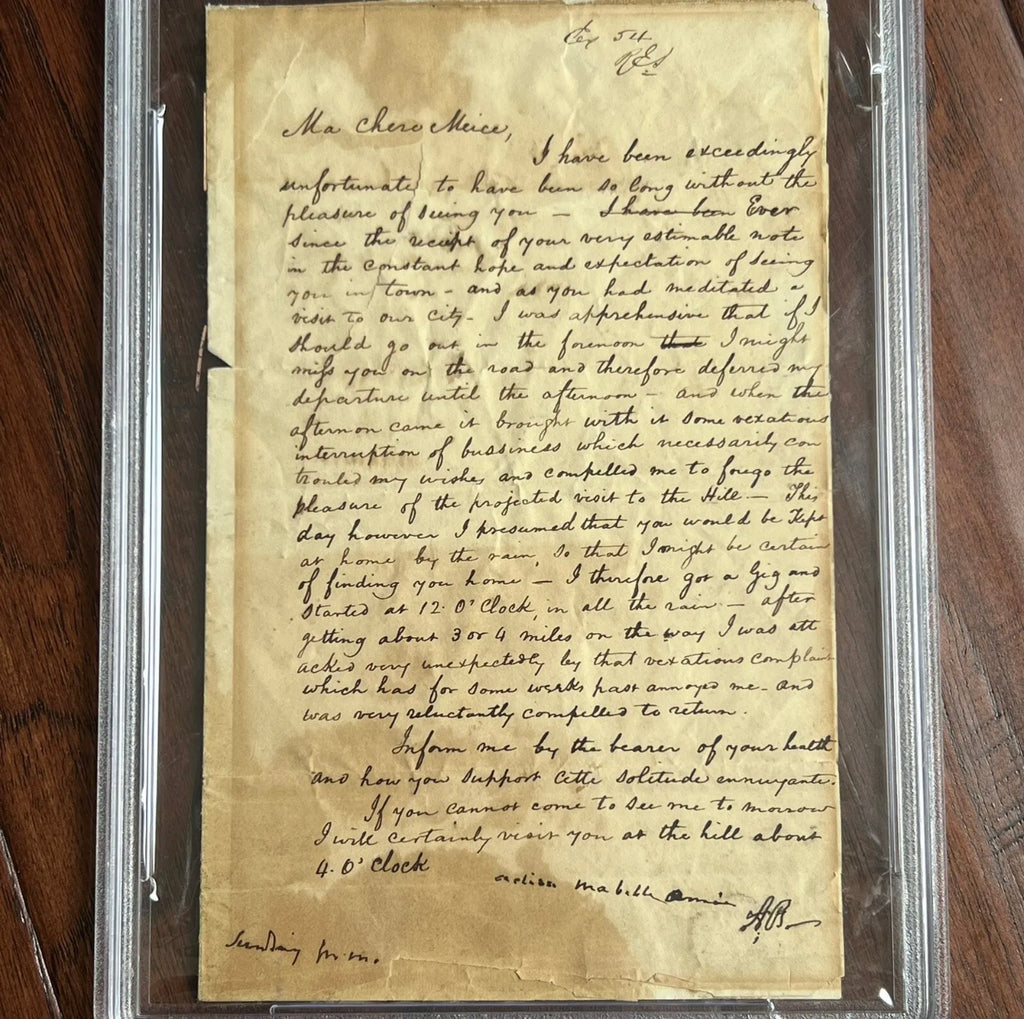 Ex 54
RES
Ma chere Meice,
I have been exceedingly
unfortunate to have been so long without the
pleasure of seeing you — I have been Ever
since the receipt of your very estimable note
in the constant hope and expectation of seeing
you in town - and as you had meditated a
visit to our city - I was apprehensive that if I
should go out in the forenoon that I might
miss you on the road and therefore deferred my
departure until the afternoon — and when the
afternoon came it brought with it some vexatious
interruption of bussiness which necessarily con
trouled my wishes and compelled me to forego the
pleasure of the projected visit to the Hill — This
day however I presumed that you would be Kept
at home by the rain, so that I might be certain
of finding you home — I therefore got a Gig and
started at 12. O'Clock, in all the rain — after
getting about 3 or 4 miles on the way I was att
acked very unexpectedly by that vexatious complaint
which has for some weeks past annoyed me - and
was very reluctantly compelled to return.
Inform me by the bearer of your health
and how you support cette solitude ennuyante.
If you cannot come to see me to morrow
I will certainly visit you at the hill about
4. O'Clock
ma belle amie
AB
Sunday